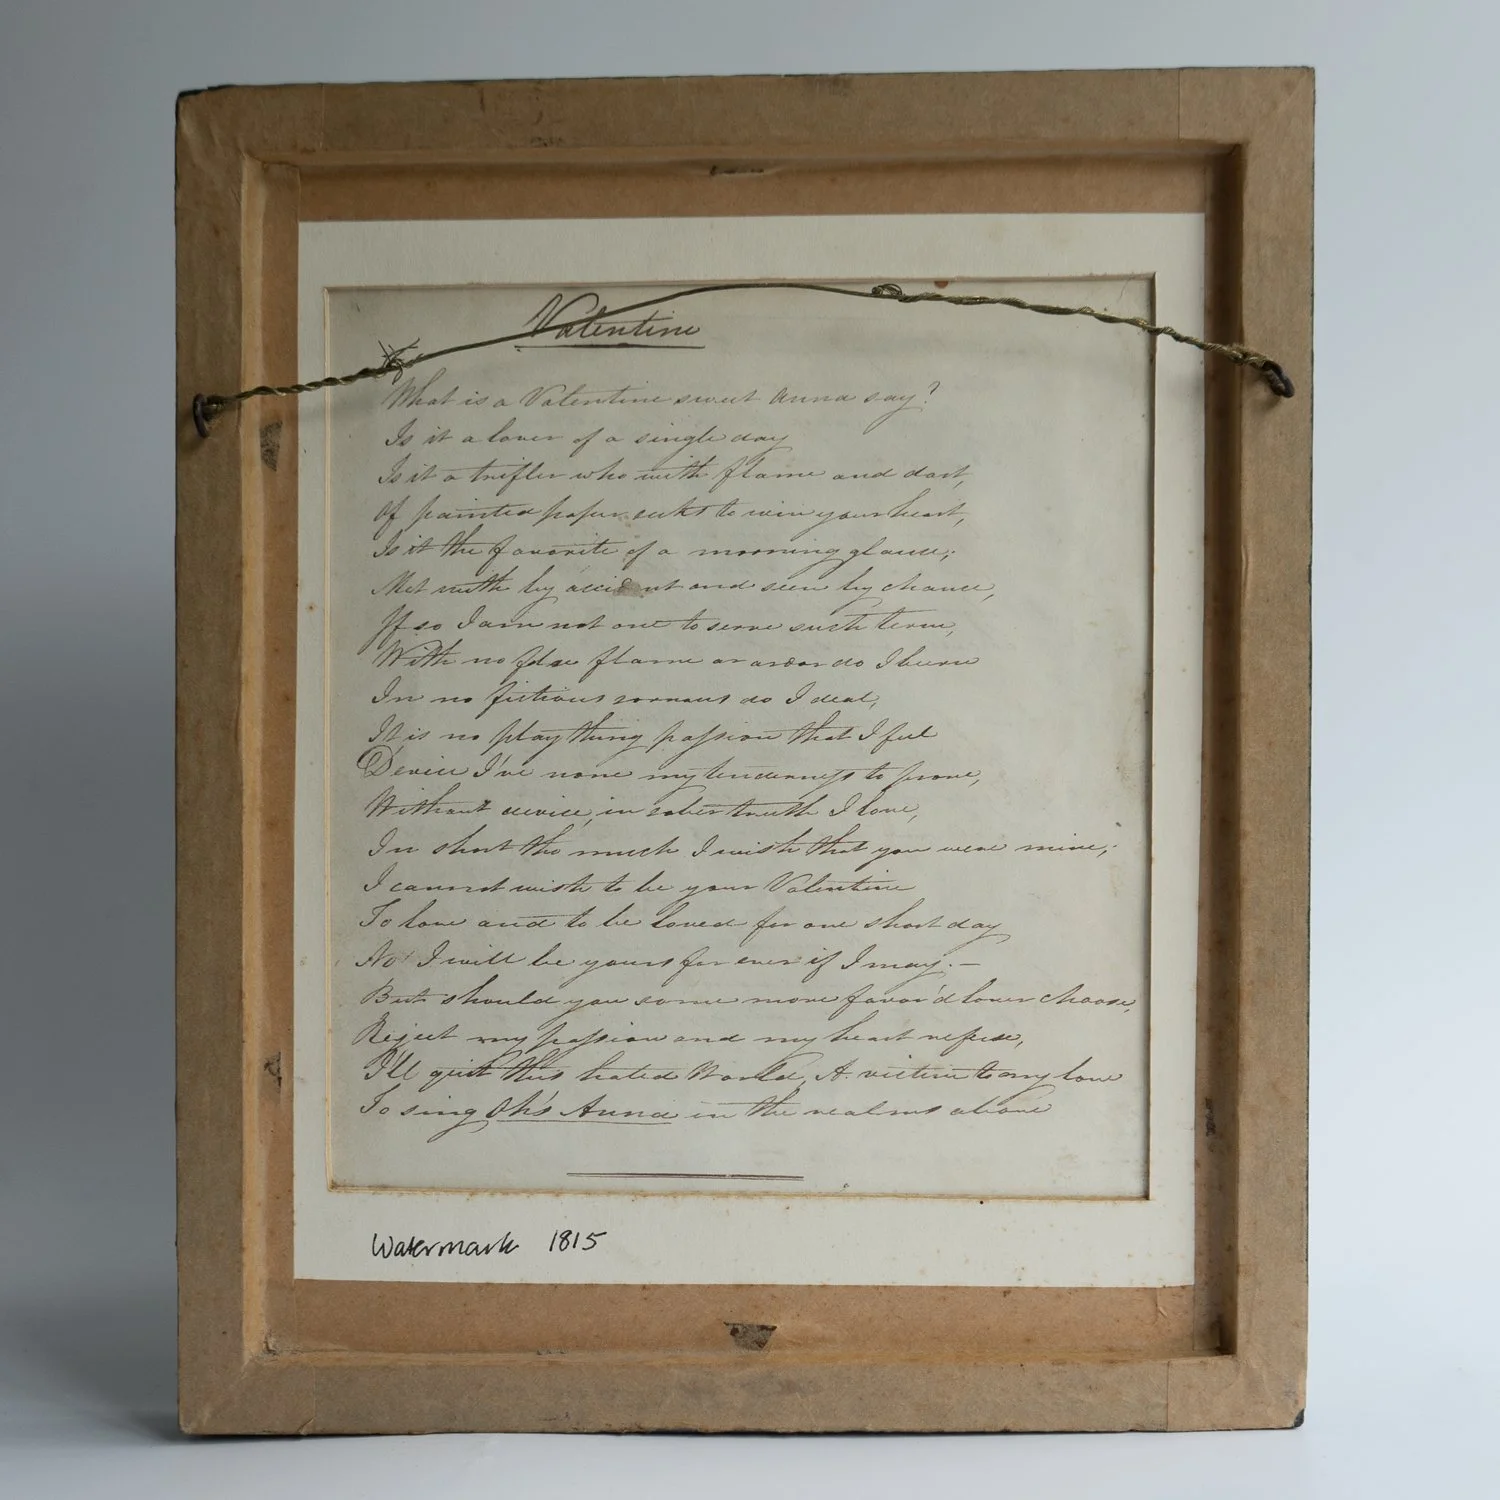 Valentine
What is a Valentine sweet Anna say?
Is it a lover of a single day
Is it a trifler who with flame and dart,
Of painted paper seeks to win your heart,
Is it the favorite of a morning glance;
Met with by accident and seen by chance,
If so I am not one to serve such term,
With no false flame or ardor do I burn
In no fictitious do I deal,
It is no play thing passion that I feel
Device I've none my tenderness to prove,
Without device, in sober truth I love,
In short tho much I wish that you were mine;
I cannot wish to be your Valentine
To love and to be loved for one short day
No I will be yours for ever if I may. —
But should you some more favor'd lover choose,
Reject my passion and my heart refuse,
I'll quit this hated World, A victim to my love
To sing Oh's Anna in the realms above
Watermark 1815